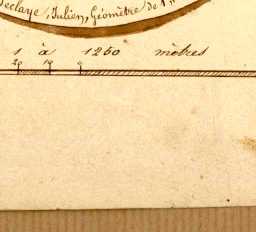 Declaye, Julien, Géomètre de 1
1 à 1250 mètres
20 10 0